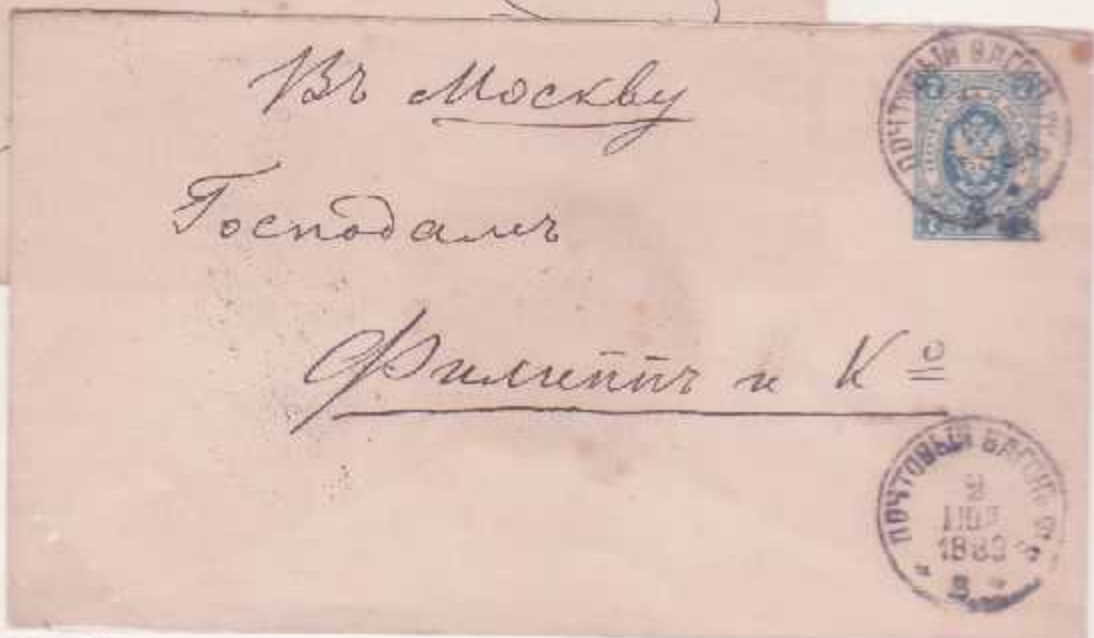 Въ Москву
Господамъ
Филиппъ и Кº
ПОЧТОВЫЙ ВАГОНЪ
7 7
ПОЧТОВЫЙ ВАГОНЪ